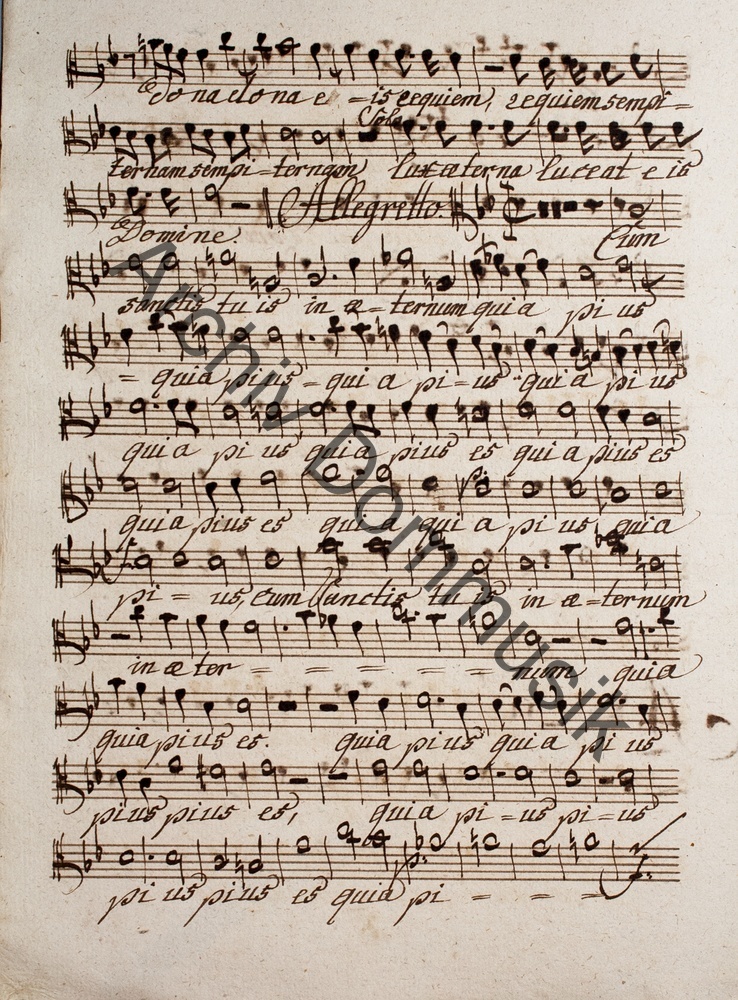 dona dona e - is requiem, requiem sempi =
Solo
ternam sempi = ternam lux æterna luceat e is
Allegretto.
Domine. Cum
sanctis tu is in æ = ternum quia pi us
= quia pius = qui a pi = us quia pius
qui a pi us quia pius es qui a pius es
quia pius es qui a qui a pi us quia
pi = us, cum Sanctis tu is in æ = ternum
in æ ter = = = = = num quia
quia pius es. quia pi us qui a pi us
pius pius es, qui a pi = us pi = us
p:
pi us pius es quia pi = = =
f:
Archiv Dommusik